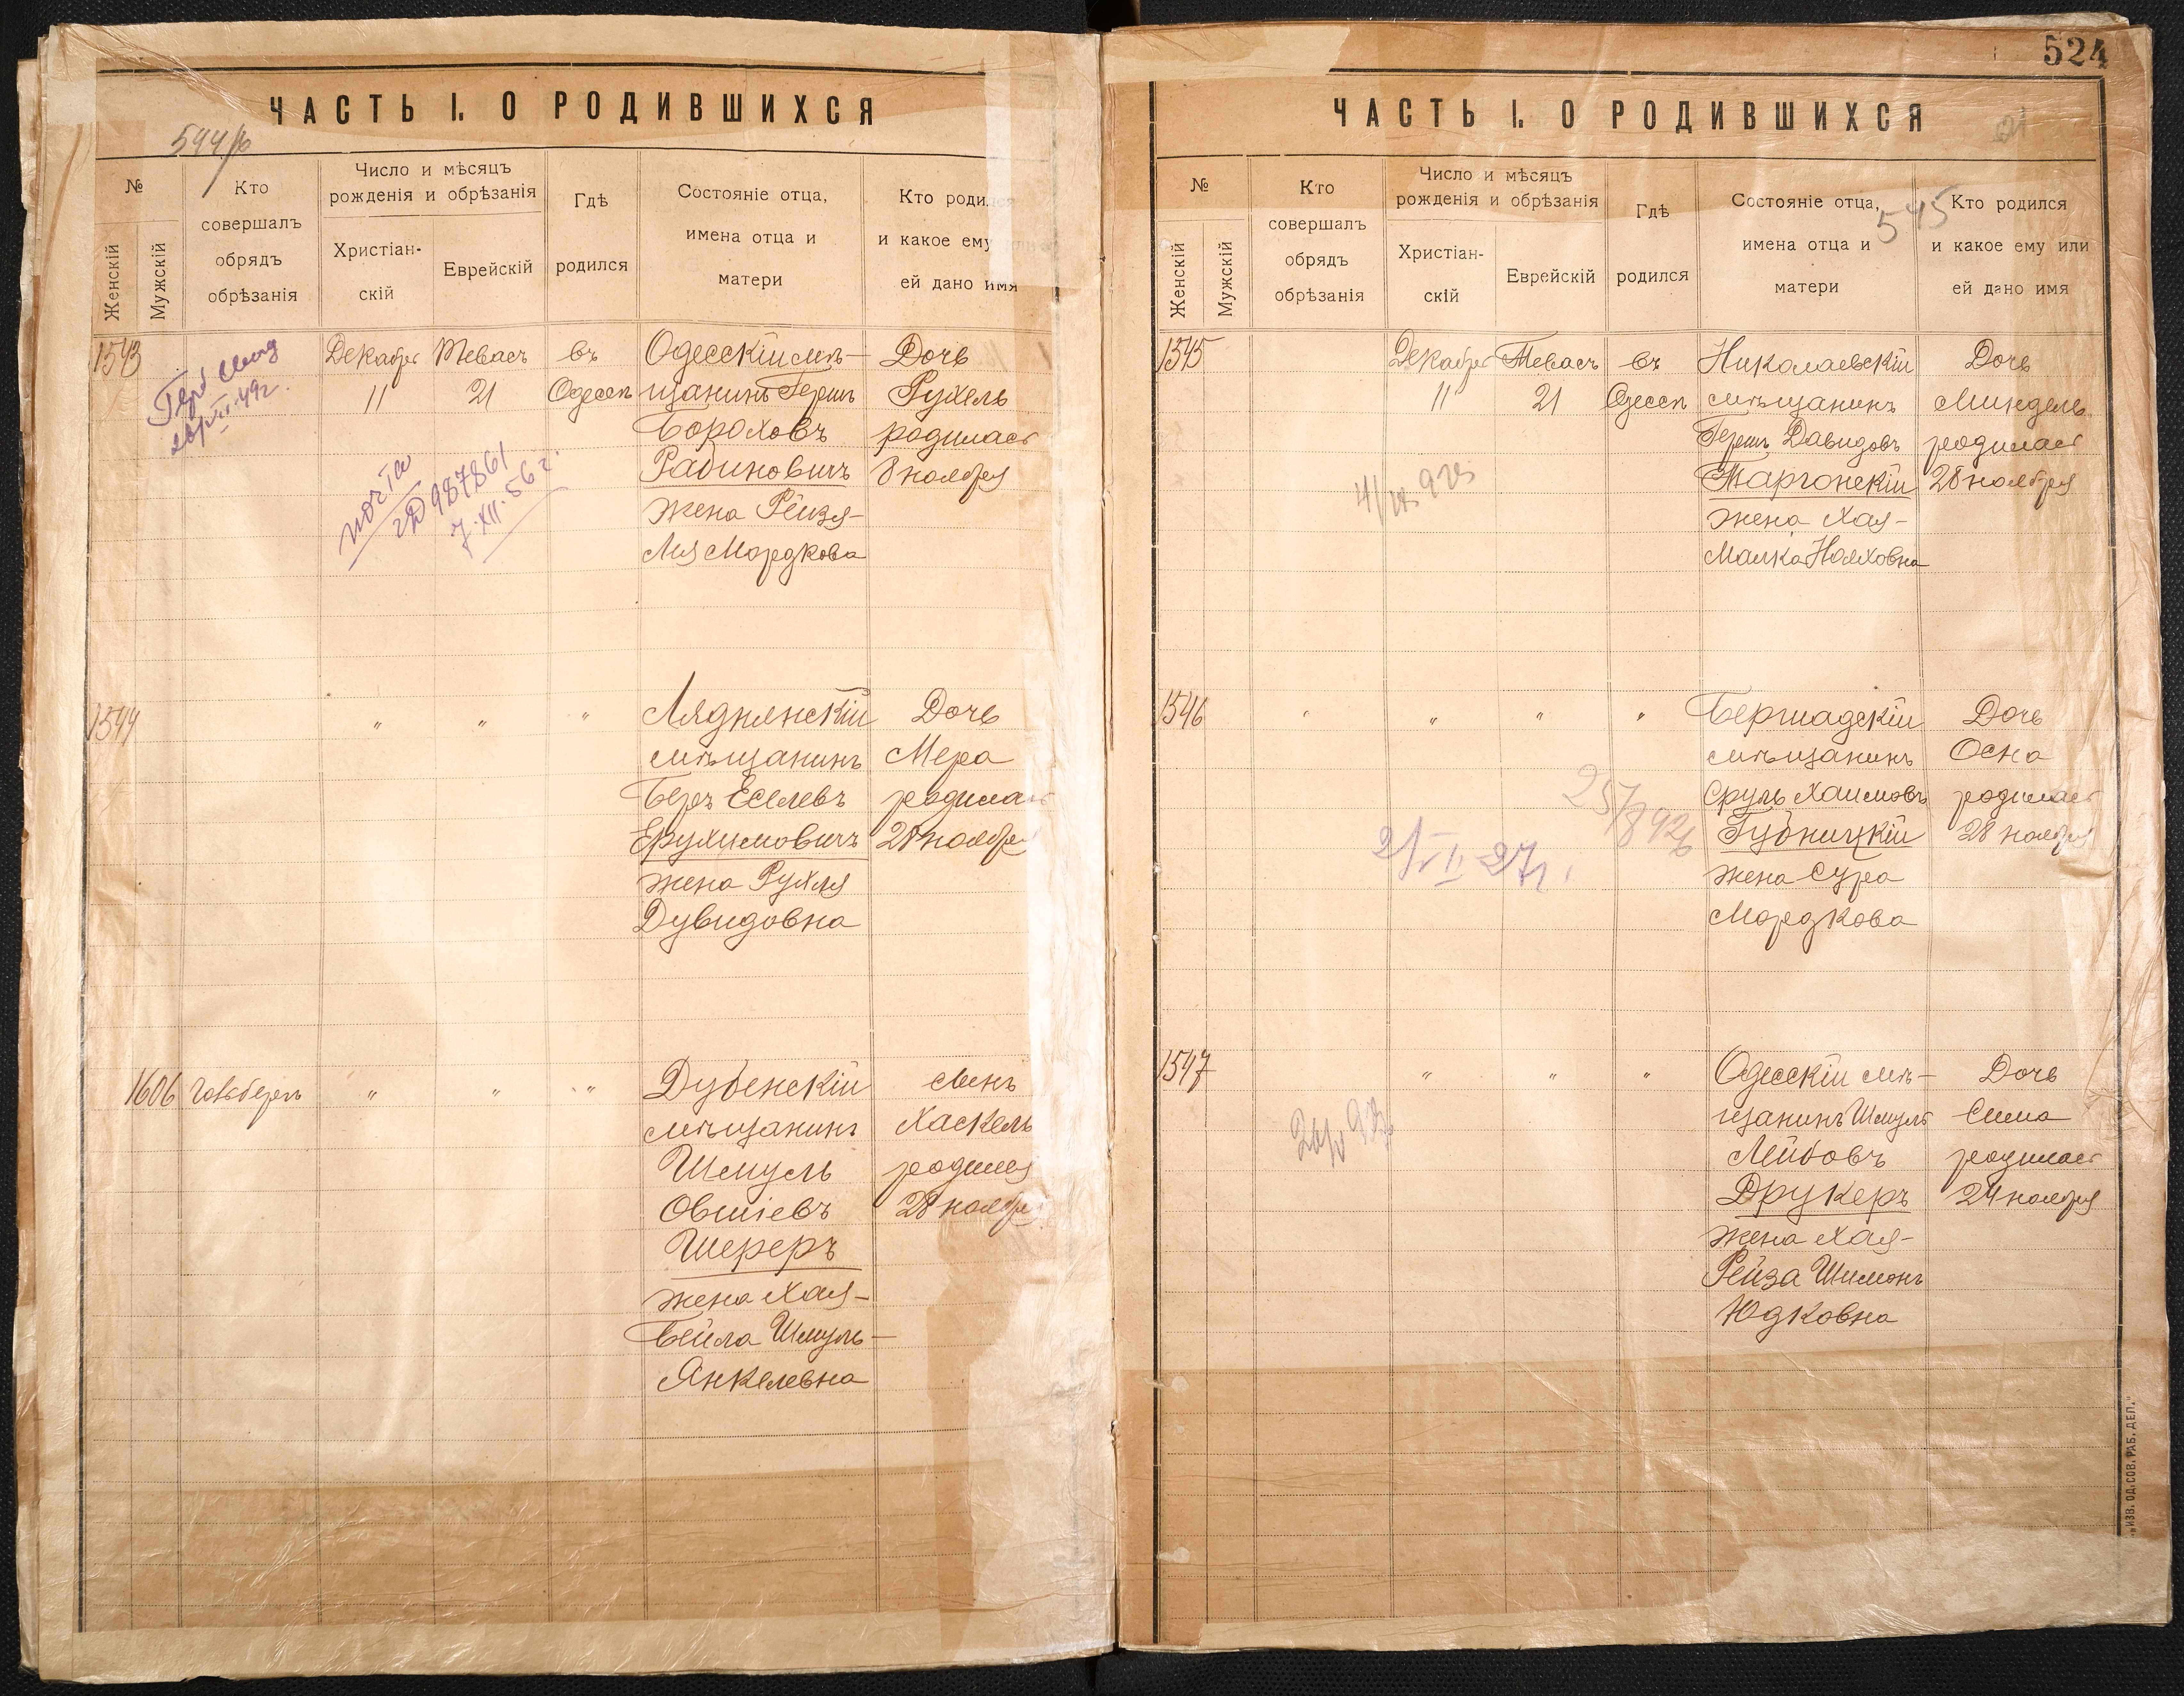 ЧАСТЬ I. О РОДИВШИХСЯ
544/б
№
Женскій
Мужскій
Кто
совершалъ
обрядъ
обрѣзанія
Число и мѣсяцъ
рожденія и обрѣзанія
Христіан-
скій
Еврейскій
Гдѣ
родился
Состояніе отца,
имена отца и
матери
Кто родился
и какое ему или
ей дано имя
1543
Декабря
11
Тевасъ
21
въ
Одессѣ
Одесскій мѣ-
щанинъ Гершъ
Бороховъ
Рабиновичъ
жена Рейзя-
Лея Мордкова
Дочь
Рухель
родилась
8 ноября
49г.
987861
7.XII.56 г.
1544
"
"
"
Ляднянскій
мѣщанинъ
Беръ Еселевъ
Ерухимовичъ
жена Рухля
Дувидовна
Дочь
Мера
родилась
28 ноября
1606
Гольбергъ
"
"
"
Дубенскій
мѣщанинъ
Шмуль
Овшіевъ
Шереръ
жена Хая-
Бейла Шмуль-
Янкелевна
сынъ
Хаскель
родился
28 ноября
524
ЧАСТЬ I. О РОДИВШИХСЯ
545
№
Женскій
Мужскій
Кто
совершалъ
обрядъ
обрѣзанія
Число и мѣсяцъ
рожденія и обрѣзанія
Христіан-
скій
Еврейскій
Гдѣ
родился
Состояніе отца,
имена отца и
матери
Кто родился
и какое ему или
ей дано имя
1545
Декабря
11
Тевасъ
21
въ
Одессѣ
Николаевскій
мѣщанинъ
Гершъ Давидовъ
Таргонскій
жена Хая-
Малка Нояховна
Дочь
Миндель
родилась
28 ноября
1546
"
"
"
Бершадскій
мѣщанинъ
Сруль Хаимовъ
Губницкій
жена Сура
Мордкова
Дочь
Осна
родилась
28 ноября
25/8 926
27г.
1547
"
"
"
Одесскій мѣ-
щанинъ Шмуль
Лейбовъ
Друкеръ
жена Хая-
Рейза Шимонъ
Юдковна
Дочь
Сима
родилась
24 ноября
„ИЗВ. ОД. СОВ. РАБ. ДЕП."